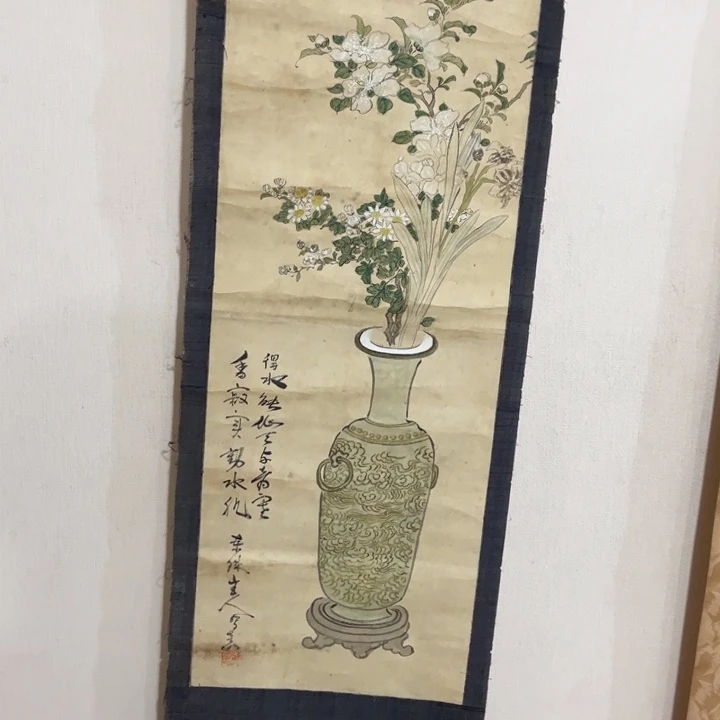 得水能仙天与奇寒
香寂寞動氷肌
主人